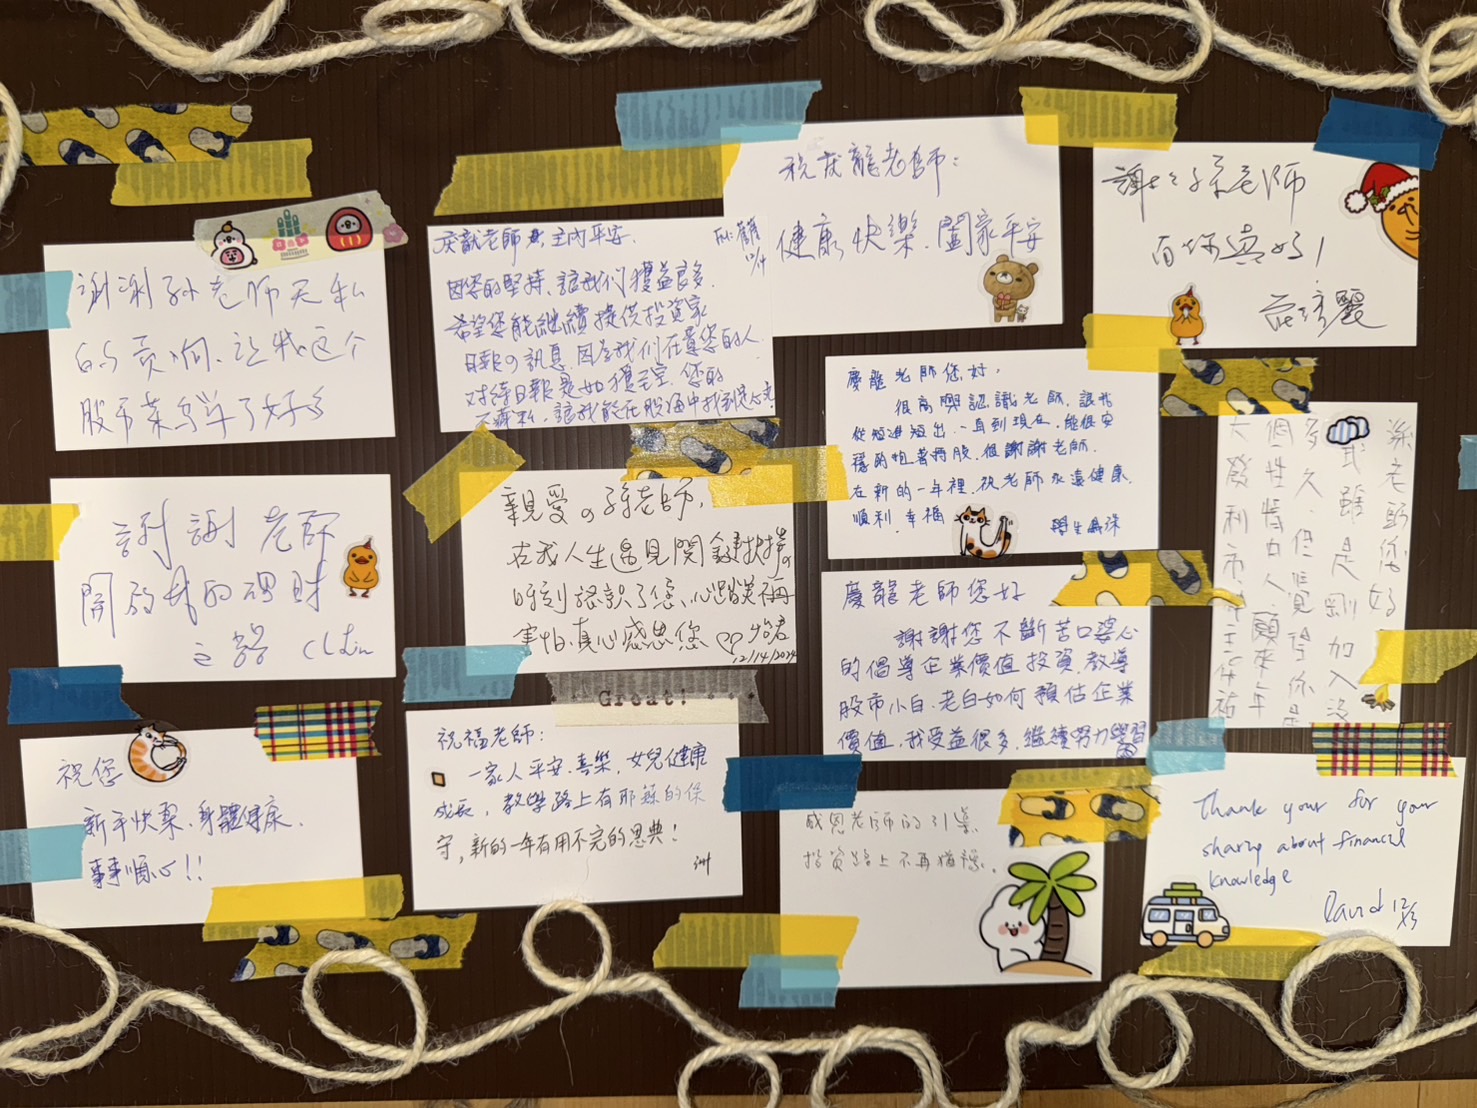 谢谢孙老师无私
的贡献,让我这个
股市菜鸟学了好多
謝謝 老師
開啟我的理財
之路 CLLin
祝您
新年快樂、身體健康、
事事順心!!
慶龍老師 主內平安、
因您的堅持、讓我們獲益良多、
希望您能繼續提供投資家
日報の訊息、因為我們在意您的人、
對待日報是如獲至寶、您的
不藏私、讓我能在股海中找到定心丸
親愛の孫老師,
在我人生遇見關鍵抉擇の
時刻認識了您、心路
害怕、真心感恩您 ♡♡ 怡君
12/14/2024
Great!
祝福老師:
一家人平安、喜樂,女兒健康
成長,教學路上有耶穌的保
守,新的一年有用不完的恩典!
祝慶龍老師:
健康、快樂、闔家平安
12/14
謝謝孫老師
有您真好!
慶龍老師您好,
很高興認識老師,讓我
從短進短出、一直到現在,能很安
穩的抱著持股,很謝謝老師、
在新的一年裡,祝老師永遠健康、
順利、幸福
學生
慶龍老師您好
謝謝您不斷苦口婆心
的倡導企業價值投資,教導
股市小白、老白如何預估企業
價值,我受益很多,繼續努力學習
感恩老師的引導、
投資路上不再猶豫、
孫老師您好
雖是剛加入沒
多久,但覺得你是
個性情中人,願來年
大發利市
Thank your for your
sharing about financial
knowledge
David 12/13